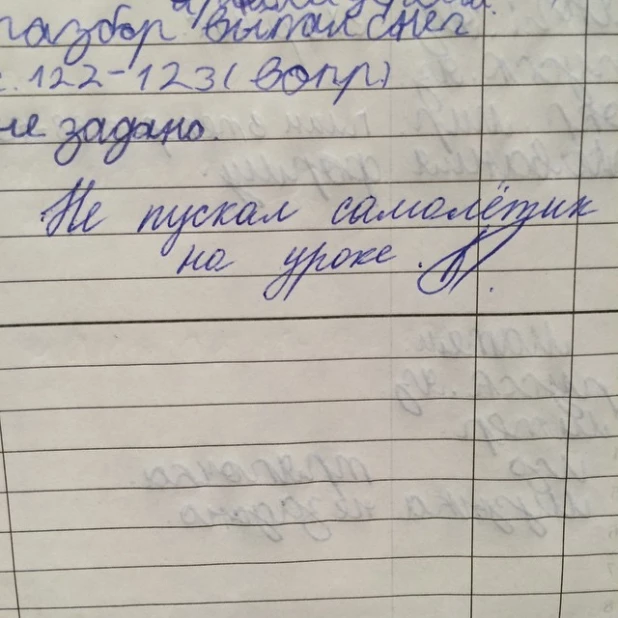 разбор выпал снег
с. 122-123 (вопр)
не задано.
Не пускал самолётик
на уроке.